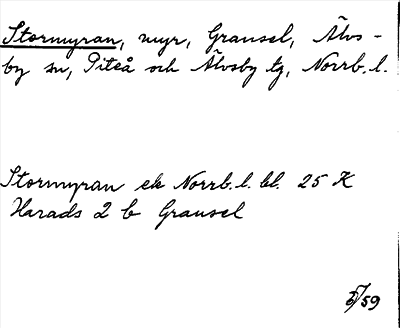 Stormyran, myr, Gransel, Älvs-
by sn, Piteå och Älvsby tg, Norrb. l.
Stormyran ek Norrb. l. bl. 25 K
Harads 2 b Gransel
5/59